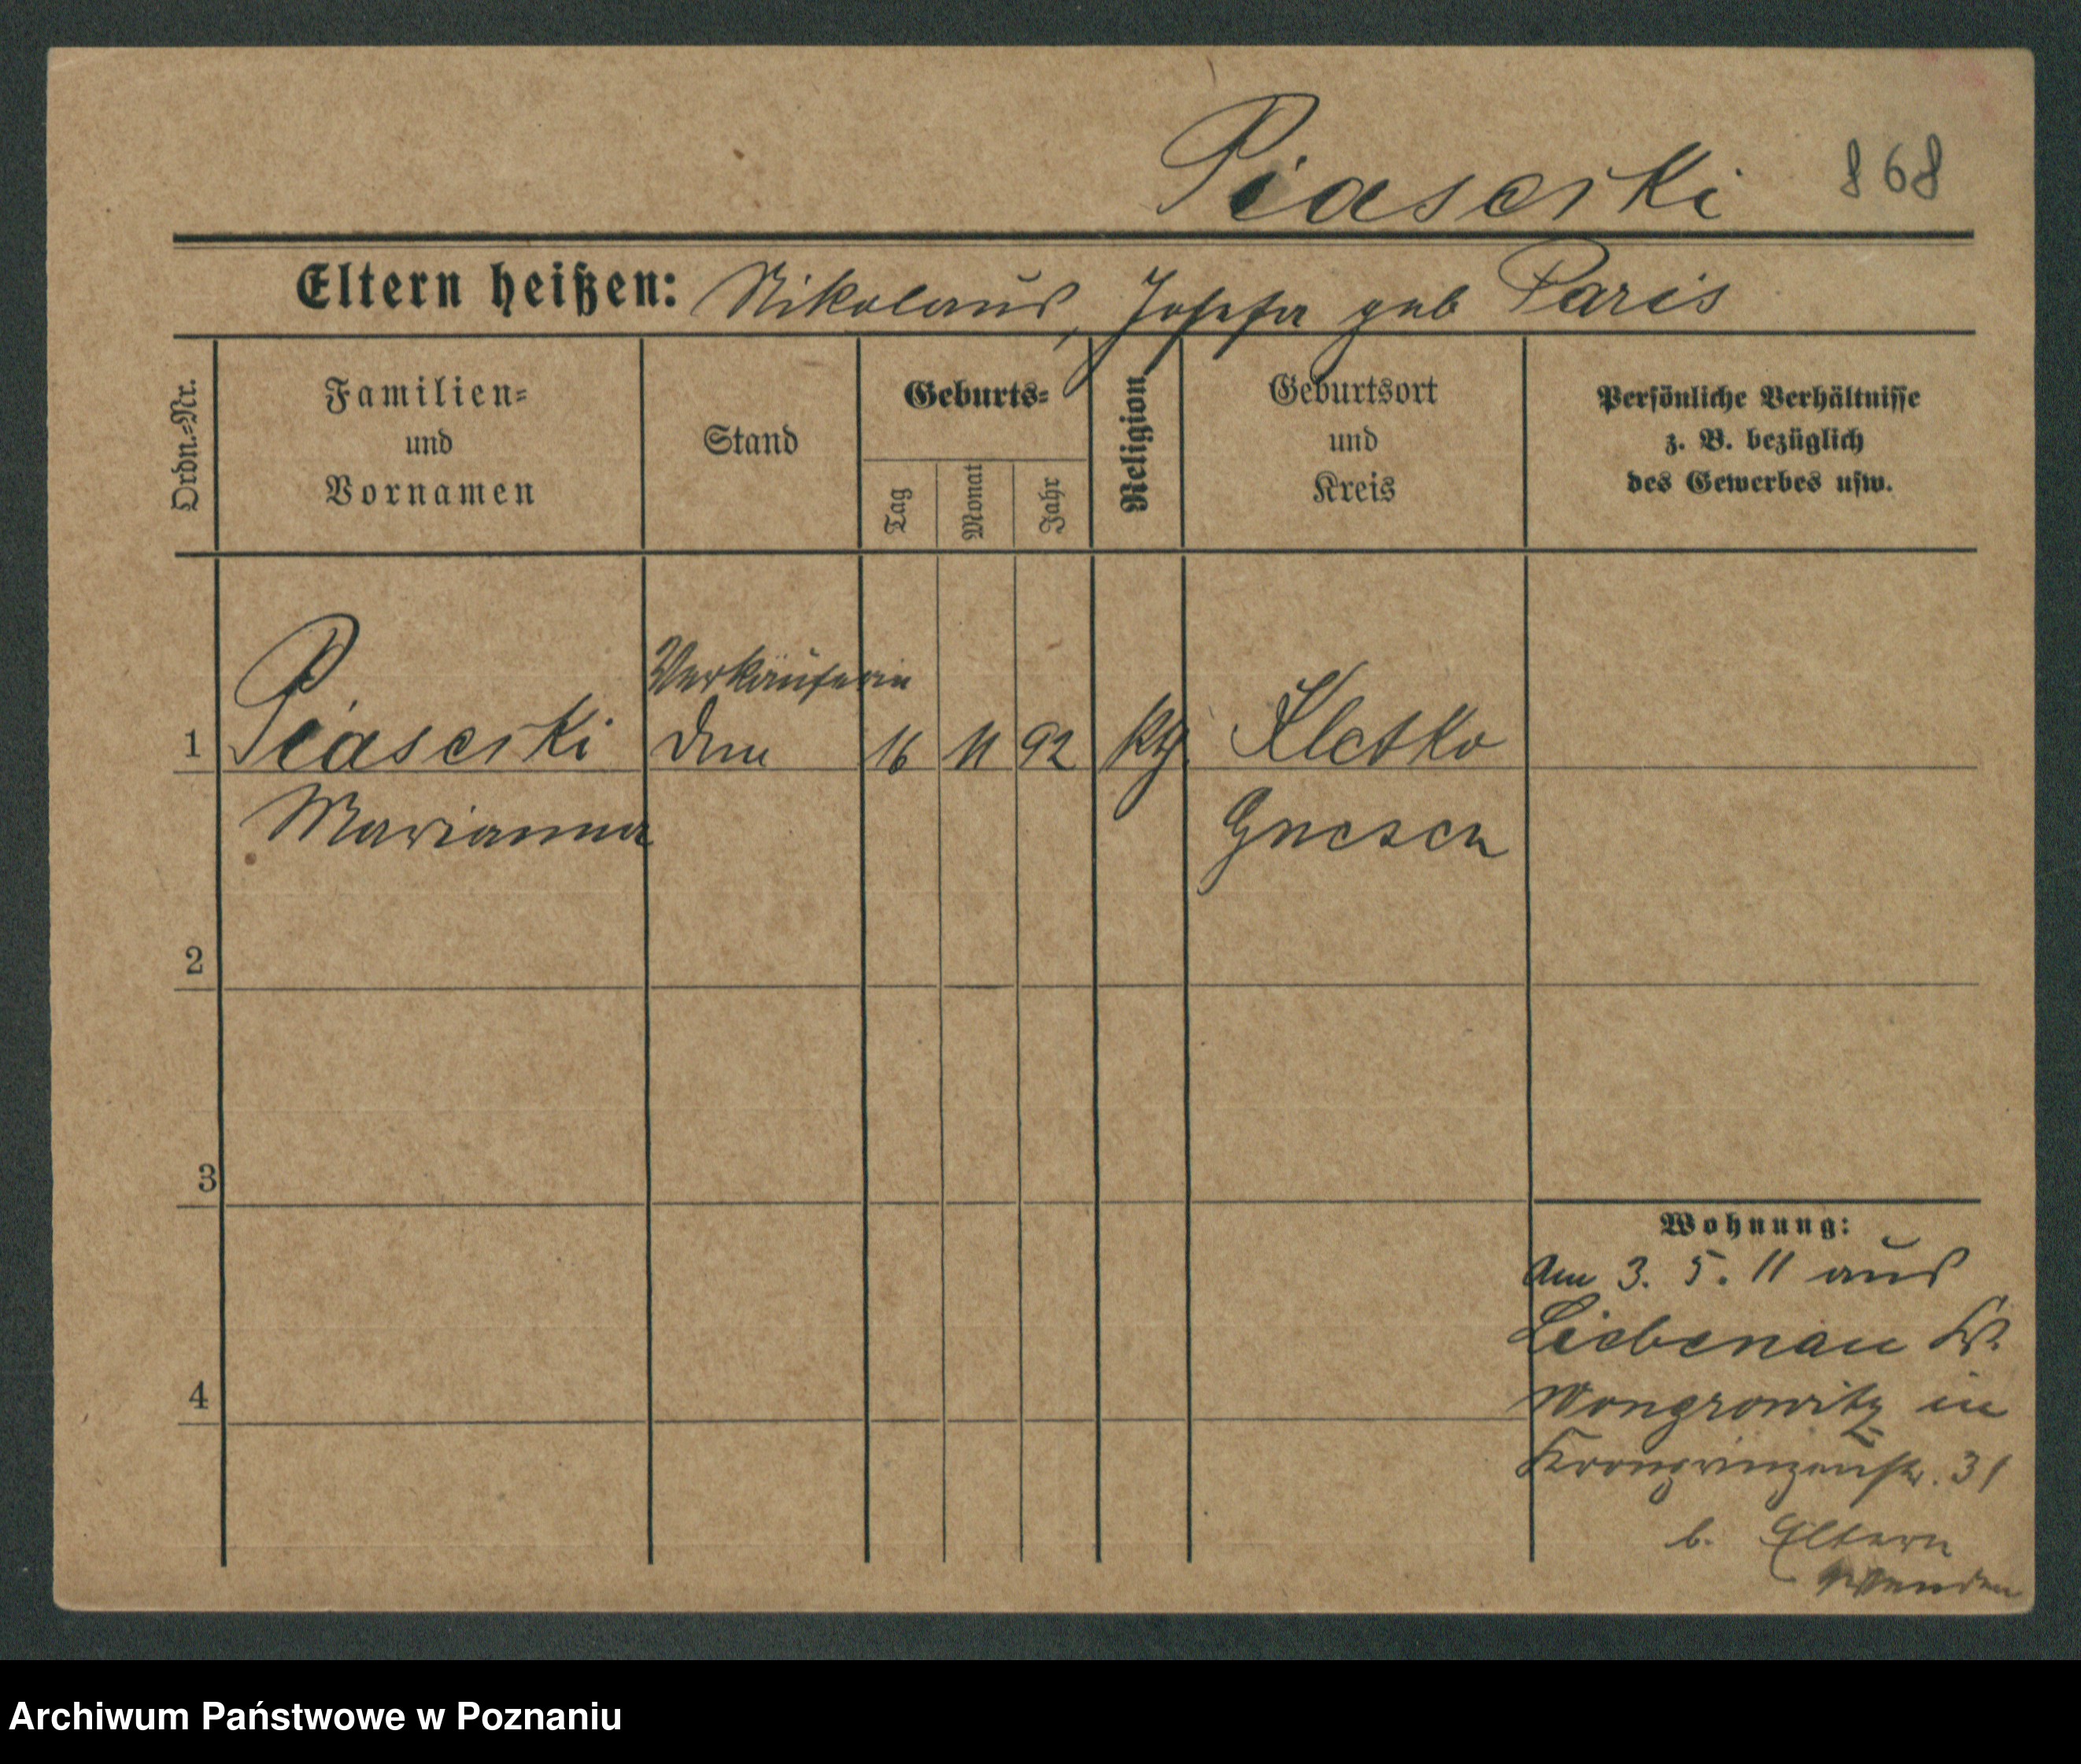 Piaseski 868
Eltern heißen: Nikolaus, Josefa geb Paris
Ordn.=Nr.
Familien=
und
Vornamen
Stand
Geburts=
Tag
Monat
Jahr
Religion
Geburtsort
und
Kreis
Persönliche Verhältnisse
z. B. bezüglich
des Gewerbes usw.
Verkäuferin
1 Piaseski 16 11 92 kth. Kletko
Marianna Gnesen
2
3
Wohnung:
Am 3. 5. 11 aus
Liebenau Kr.
4 Wongrowitz in
Kronprinzenstr. 31
b. Eltern
Wenden
Archiwum Państwowe w Poznaniu